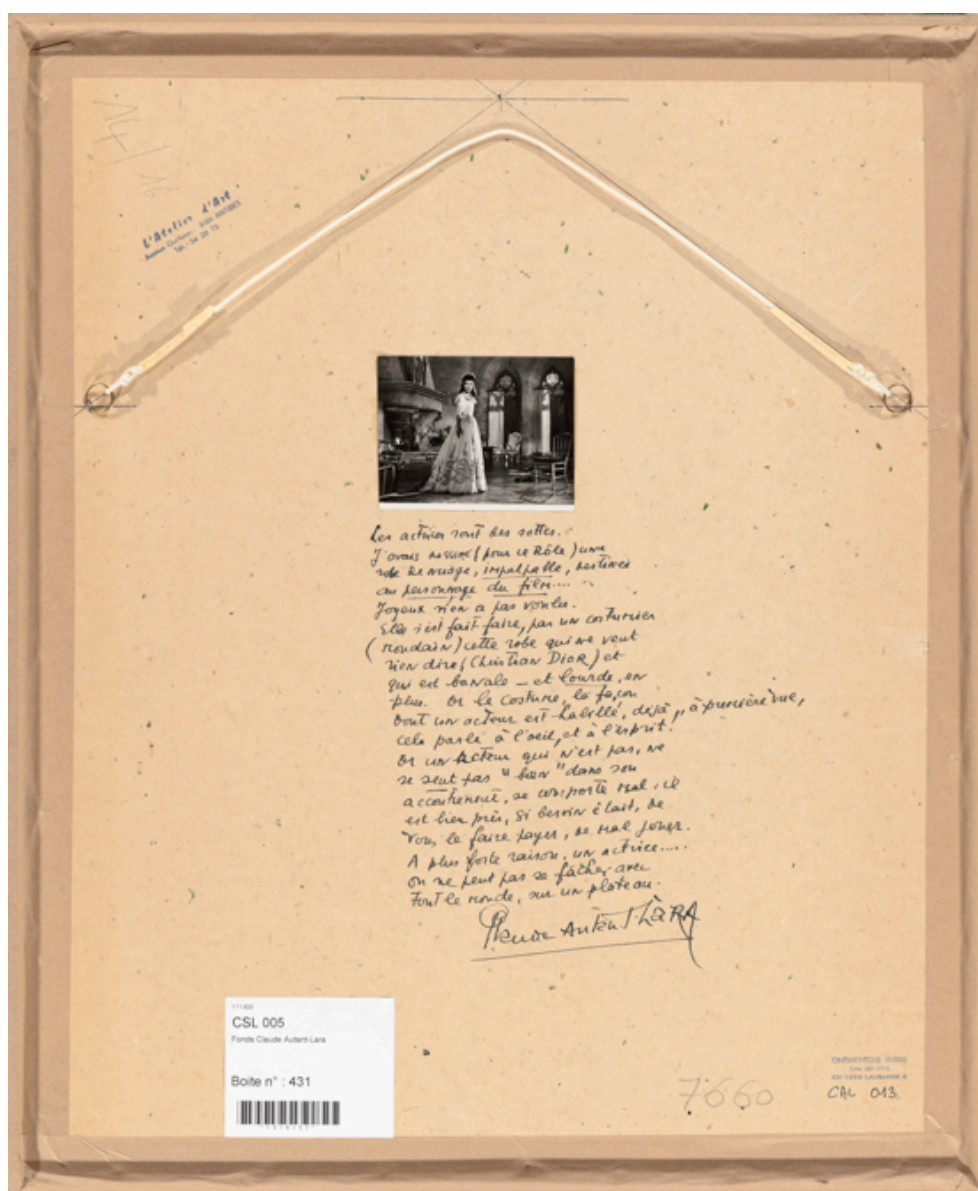 14/16
L'Atelier d'Art
ANTIBES
Les actrices sont des sottes.
J'avais dessiné (pour ce Rôle) une
robe de nuage, impalpable, destinée
au personnage du film....
Joyeux n'en a pas voulu.
Elle s'est fait faire, par un costumier
(mondain) cette robe qui ne veut
rien dire (Christian Dior) et
qui est banale – et lourde, en
plus. Or le costume, la façon
dont un acteur est habillé, déjà, à première vue,
cela parle à l'oeil, et à l'esprit.
Or un acteur qui n'est pas, ne
se sent pas "bien" dans son
accoutrement, se comporte mal, il
est bien près, si besoin était, de
vous le faire payer, de mal jouer.
A plus forte raison, un actrice.....
on ne peut pas se fâcher avec
Tout le monde, sur un plateau.
Claude Autant Lara
111400
CSL 005
Fonds Claude Autant-Lara
Boite n° : 431
7660
CINÉMATHÈQUE SUISSE
CH 1000 LAUSANNE
CAL 013.